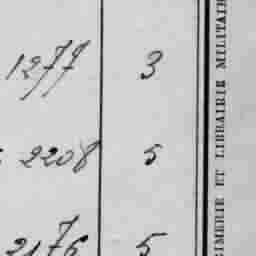 1277 3
2208 5
2176 5
IMERIE ET LIBRAIRIE MILITAIR